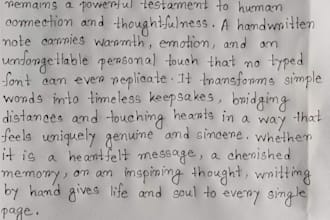 remains a powerful testament to human
connection and thoughtfulness. A handwritten
note carries warmth, emotion, and an
unforgetlable personal touch that no typed
font can ever replicate. It transforms simple
words into timeless keepsakes, bridging
distances and touching hearts in a way that
feels uniquely genuine and sincere. Whether
it is a heartfelt message, a cherished
memory, or an inspiring thought, writting
by hand gives life and soul to every single
page.